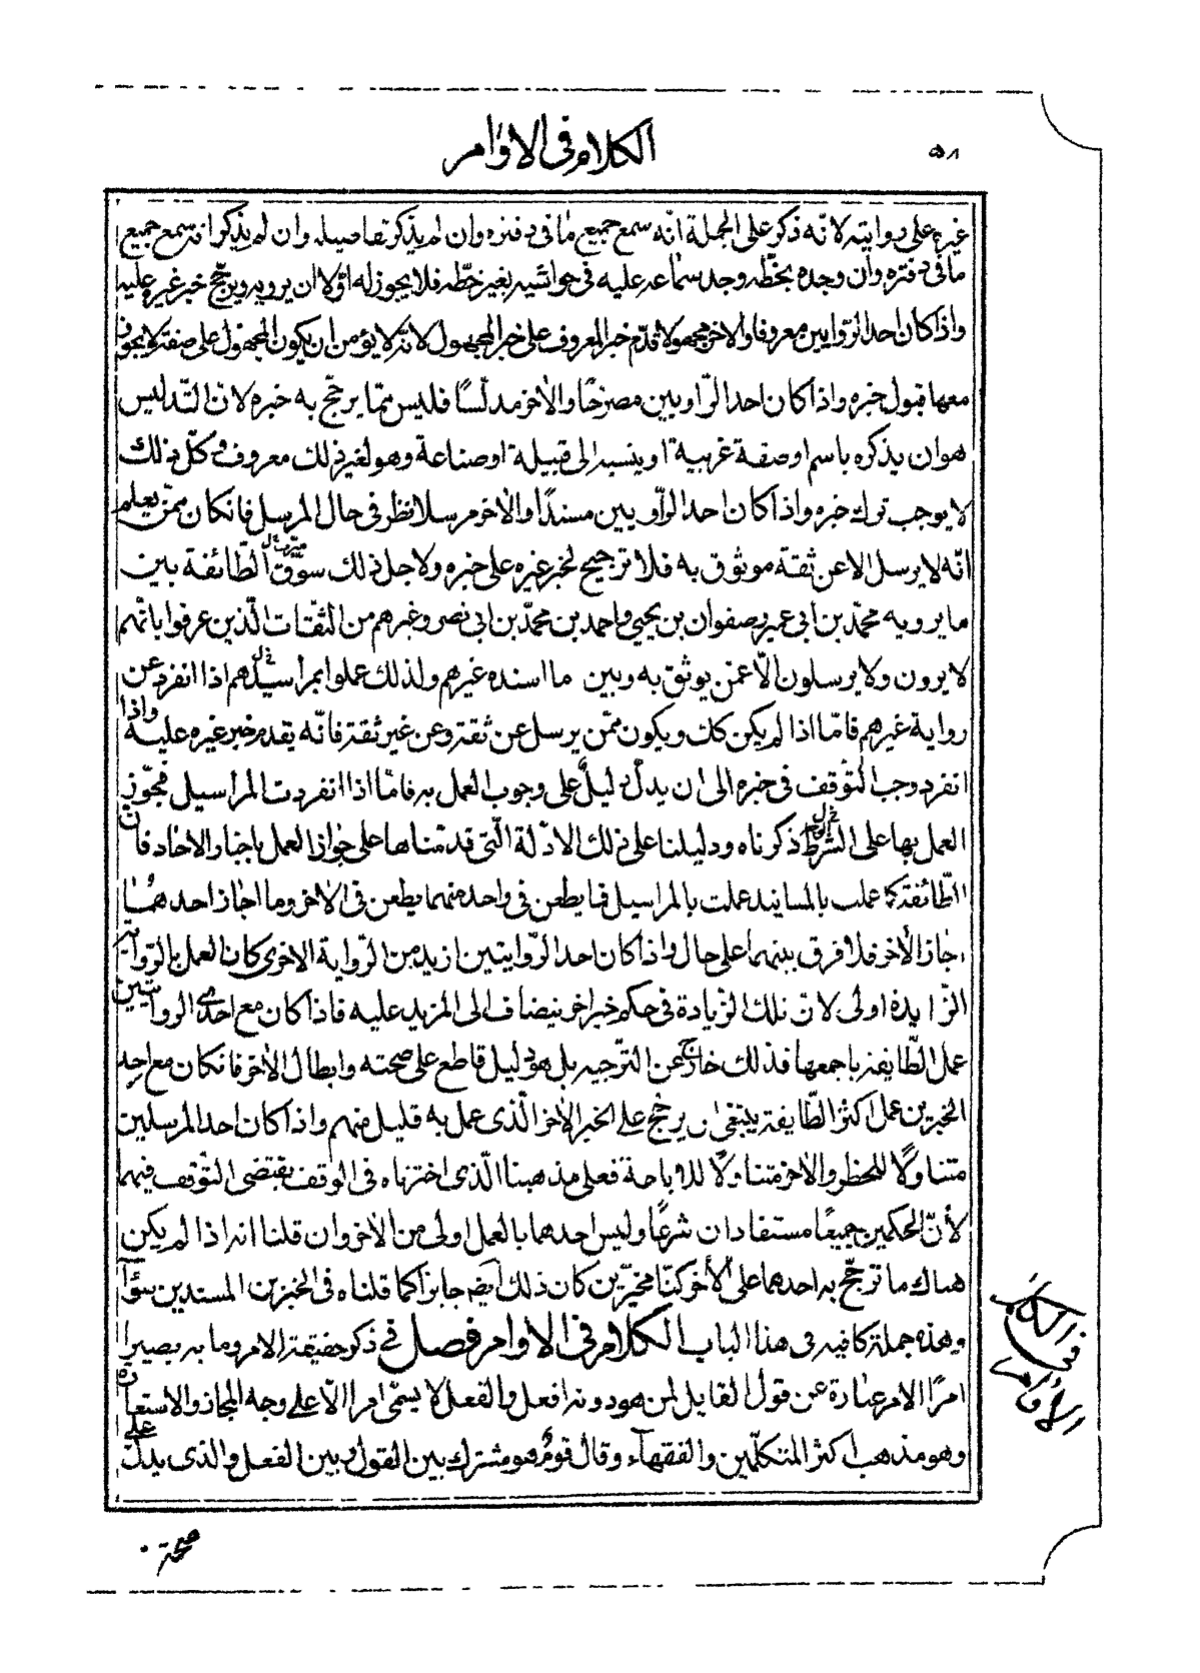 ٥٨
الكلام فى الاوامر
غيره على روايته لانّه ذكر على الجملة انّه سمع جميع ما فى دفتره وان لم يذكر تفاصيله وان لم يذكر انه سمع جميع
ما فى دفتره وان وجده بخطّه وجد سماعه عليه فى حواشيه بغير خطّه فلا يجوز له اوّلا ان يرويه ويرجّح خبر غيره عليه
واذا كان احد الرّوايين معروفا والاخر مجهولا قدّم خبر المعروف على خبر المجهول لانّه لا يؤمن ان يكون المجهول على صفة لا يجوز
معها قبول خبره واذا كان احد الرّاويين مصرحًا والاخر مدلّسًا فليس ممّا يرجّح به خبره لانّ التّدليس
هو ان يذكره باسم او صفة غريبة او ينسبه الى قبيلة او صناعة وهو لغير ذلك معروف وكلّ ذلك
لا يوجب ترك خبره واذا كان احد الرّاويين مسندًا والاخر مرسلا نظر فى حال المرسل فان كان ممّن يعلم
انّه لا يرسل الا عن ثقة موثوق به فلا ترجيح لخبر غيره على خبره ولاجل ذلك سوّت الطّائفة بين
ما يرويه محمّد بن ابى عمير وصفوان بن يحيى واحمد بن محمّد بن ابى نصر وغيرهم من الثّقات الّذين عرفوا بانّهم
لا يرون ولا يرسلون الّا عمّن يوثق به وبين ما اسنده غيرهم ولذلك عملوا بمراسيلهم اذا انفرد عن
رواية غيرهم فامّا اذا لم يكن كك ويكون ممّن يرسل عن ثقة وعن غير ثقة فانّه يقدم خبر غيره عليه واذا
انفرد وجب التّوقف فى خبره الى ان يدلّ دليلٌ على وجوب العمل به فامّا اذا انفردت المراسيل فيجوز
العمل بها على الشّرط ذكرناه ودليلنا على ذلك الادلّة الّتى قدمناها على جواز العمل باخبار الاحاد فان
الطّائفة كما عملت بالمسانيد عملت بالمراسيل فما يطعن فى واحد منهما يطعن فى الاخر وما اجاز احدهما
اجاز الاخر فلا فرق بينهما على حال واذا كان احد الرّوايتين ازيد من الرّواية الاخرى كان العمل بالرّواية
الزّايدة اولى لانّ تلك الزّيادة فى حكم خبر اخر ينضاف الى المزيد عليه فاذا كان مع احدى الروايتين
عمل الطّايفة باجمعها فذلك خارج عن التّرجيح بل هو دليل قاطع على صحته وابطال الاخر فان كان مع احد
الخبرين عمل اكثر الطّايفة ينبغى ان يرجّح على الخبر الاخر الّذى عمل به قليل منهم واذا كان احد المرسلين
متناولًا للحظر والاخر متناولًا للاباحة فعلى مذهبنا الّذى اخترناه فى الوقف يقتضى التّوقف فيهما
لأنّ الحكمين جميعًا مستفادان شرعًا وليس احدهما بالعمل اولى من الاخر وان قلنا انه اذا لم يكن
هناك ما ترجّح به احدهما على الاخر كنّا مخيّرين كان ذلك ايضً جايزا كما قلناه فى الخبرين المسندين سوآء
وهذه جملة كافية فى هذا الباب الكلام فى الاوامر فصل فى ذكر حقيقة الامر وما به يصير
امرًا الامر عبارة عن قول القايل لمن هو دونه افعل والفعل لا يسمّى امرا الّا على وجه المجاز والاستعارة
وهو مذهب اكثر المتكلّمين والفقهآء وقال قومٌ هو مشترك بين القول وبين الفعل والذى يدلّ على
فى الكلام
الاوامر
صحّة